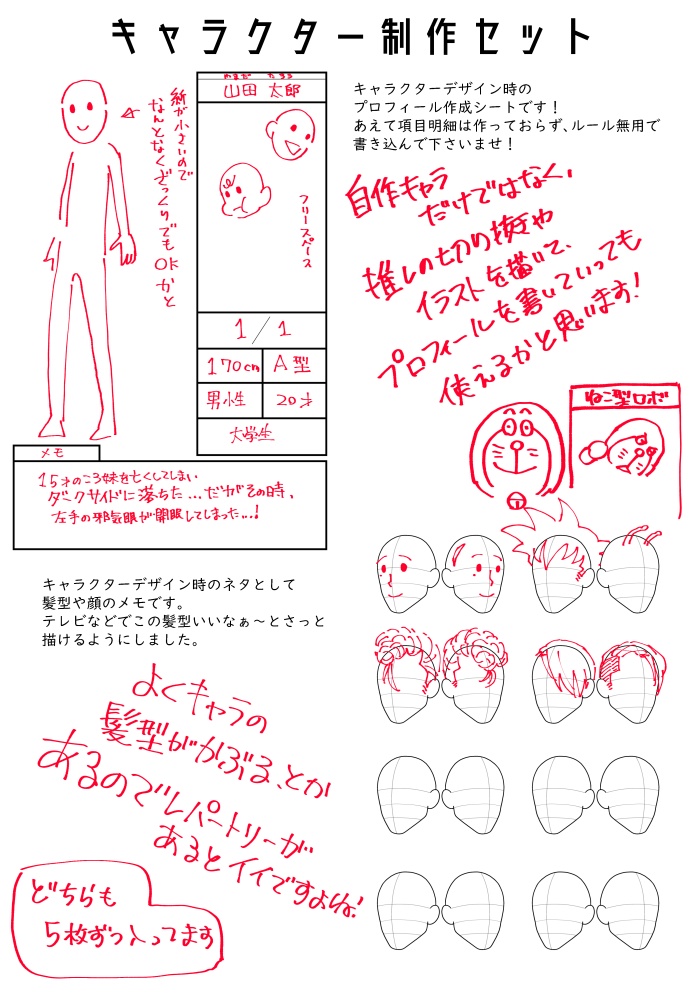 キャラクター制作セット
やまだ たろう
山田 太郎
フリースペース
1/1
170cm
A型
男性
20才
大学生
紙が小さいので
なんとなくざっくりでも
OKかと
メモ
15才のころ妹を亡くしてしまい
ダークサイドに落ちた...だがその時、
左手の邪気眼が開眼してしまった...!
キャラクターデザイン時の
プロフィール作成シートです！
あえて項目明細は作っておらず、ルール無用で
書き込んで下さいませ！
自作キャラ
だけではなく、
推しの切り抜きや
イラストを描いて、
プロフィールを書いていっても
使えるかと思います!
ねこ型ロボ
キャラクターデザイン時のネタとして
髪型や顔のメモです。
テレビなどでこの髪型いいなぁ～とさっと
描けるようにしました。
よくキャラの
髪型がかぶる、とか
あるのでレパートリーが
あるとイイですよね!
どちらも
5枚ずつ入ってます